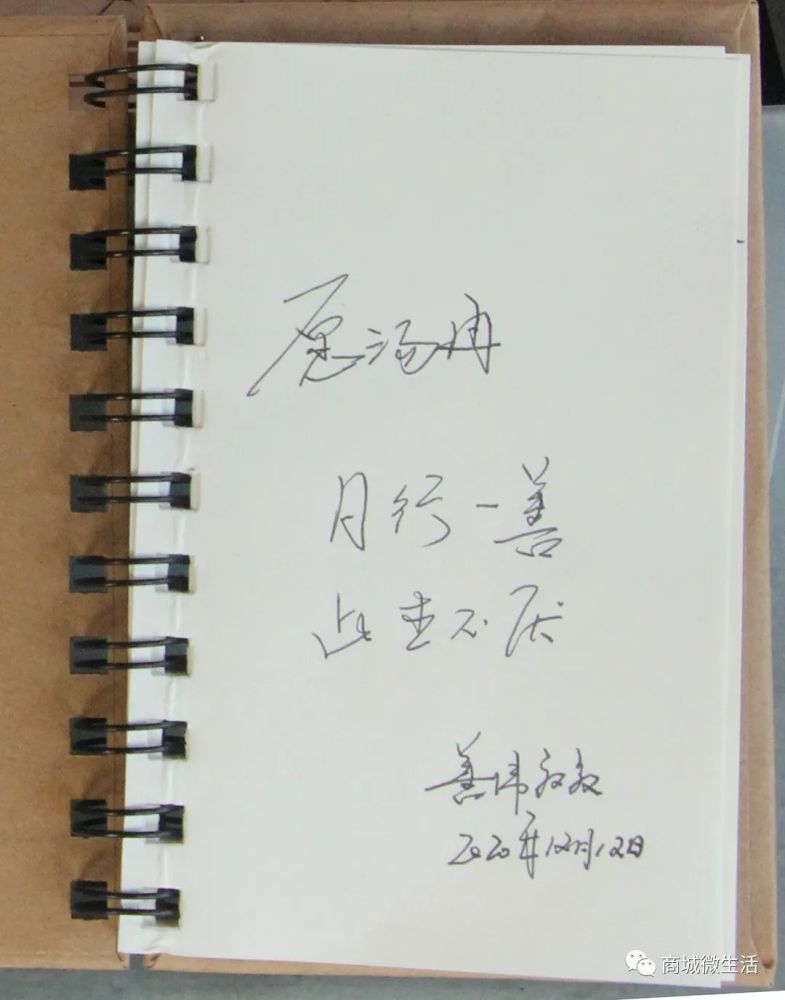 愿汤冉
月行一善
此生不厌
善
2020年12月12日
商城微生活